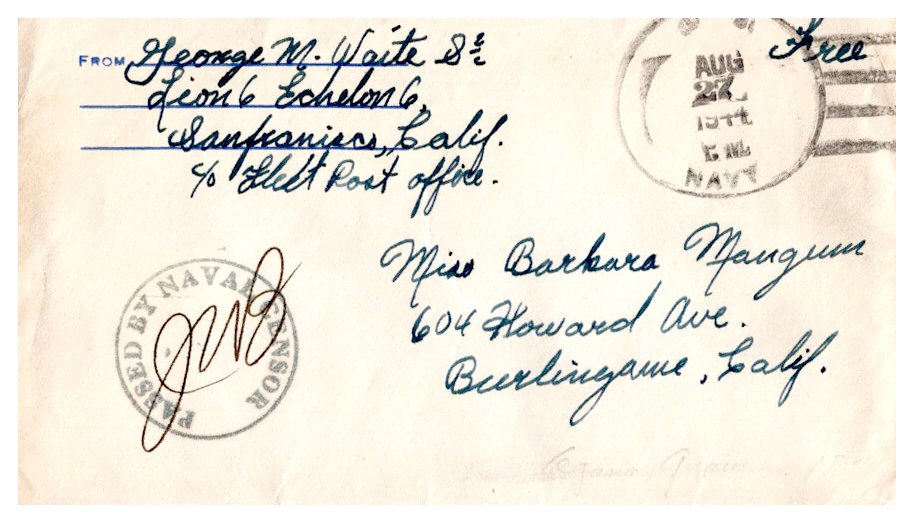 FROM George M. Waite S 2/c
Free
Lion 6 Echelon 6,
Sanfranisco, Calif.
c/o Fleet Post office.
AUG
27
1944
NAVY
Miss Barbara Mangum
604 Howard Ave.
Burlingame, Calif.
PASSED BY NAVAL CENSOR
JWB